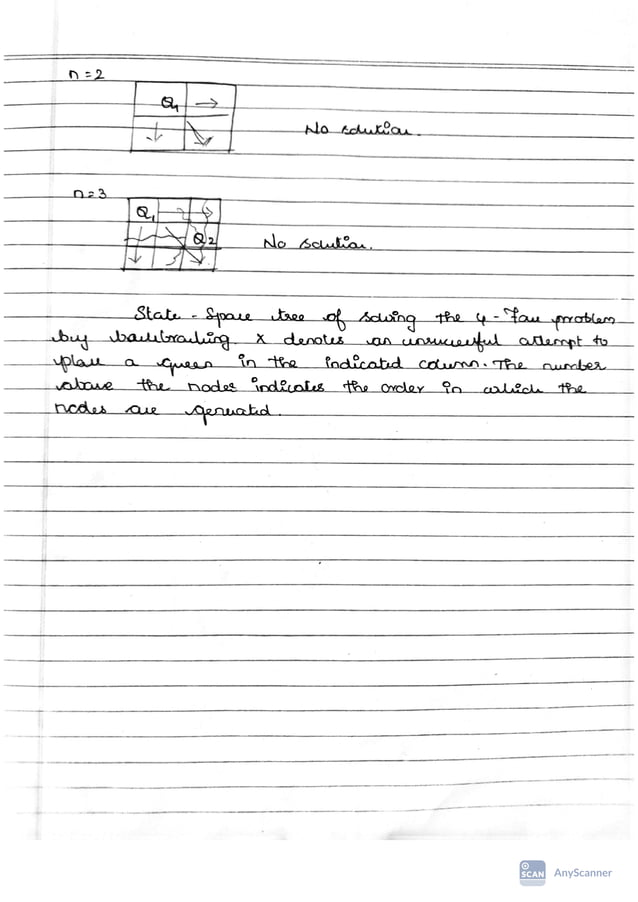 n = 2
Q1
No solution.
n = 3
Q1
Q2
No solution.
State - Space tree of solving the 4 - Fau problem
by backtracking. X denotes an unsuccessful attempt to
place a queen in the indicated column. The number
above the nodes indicates the order in which the
nodes are generated.
SCAN AnyScanner